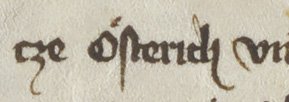 tze Österich vn